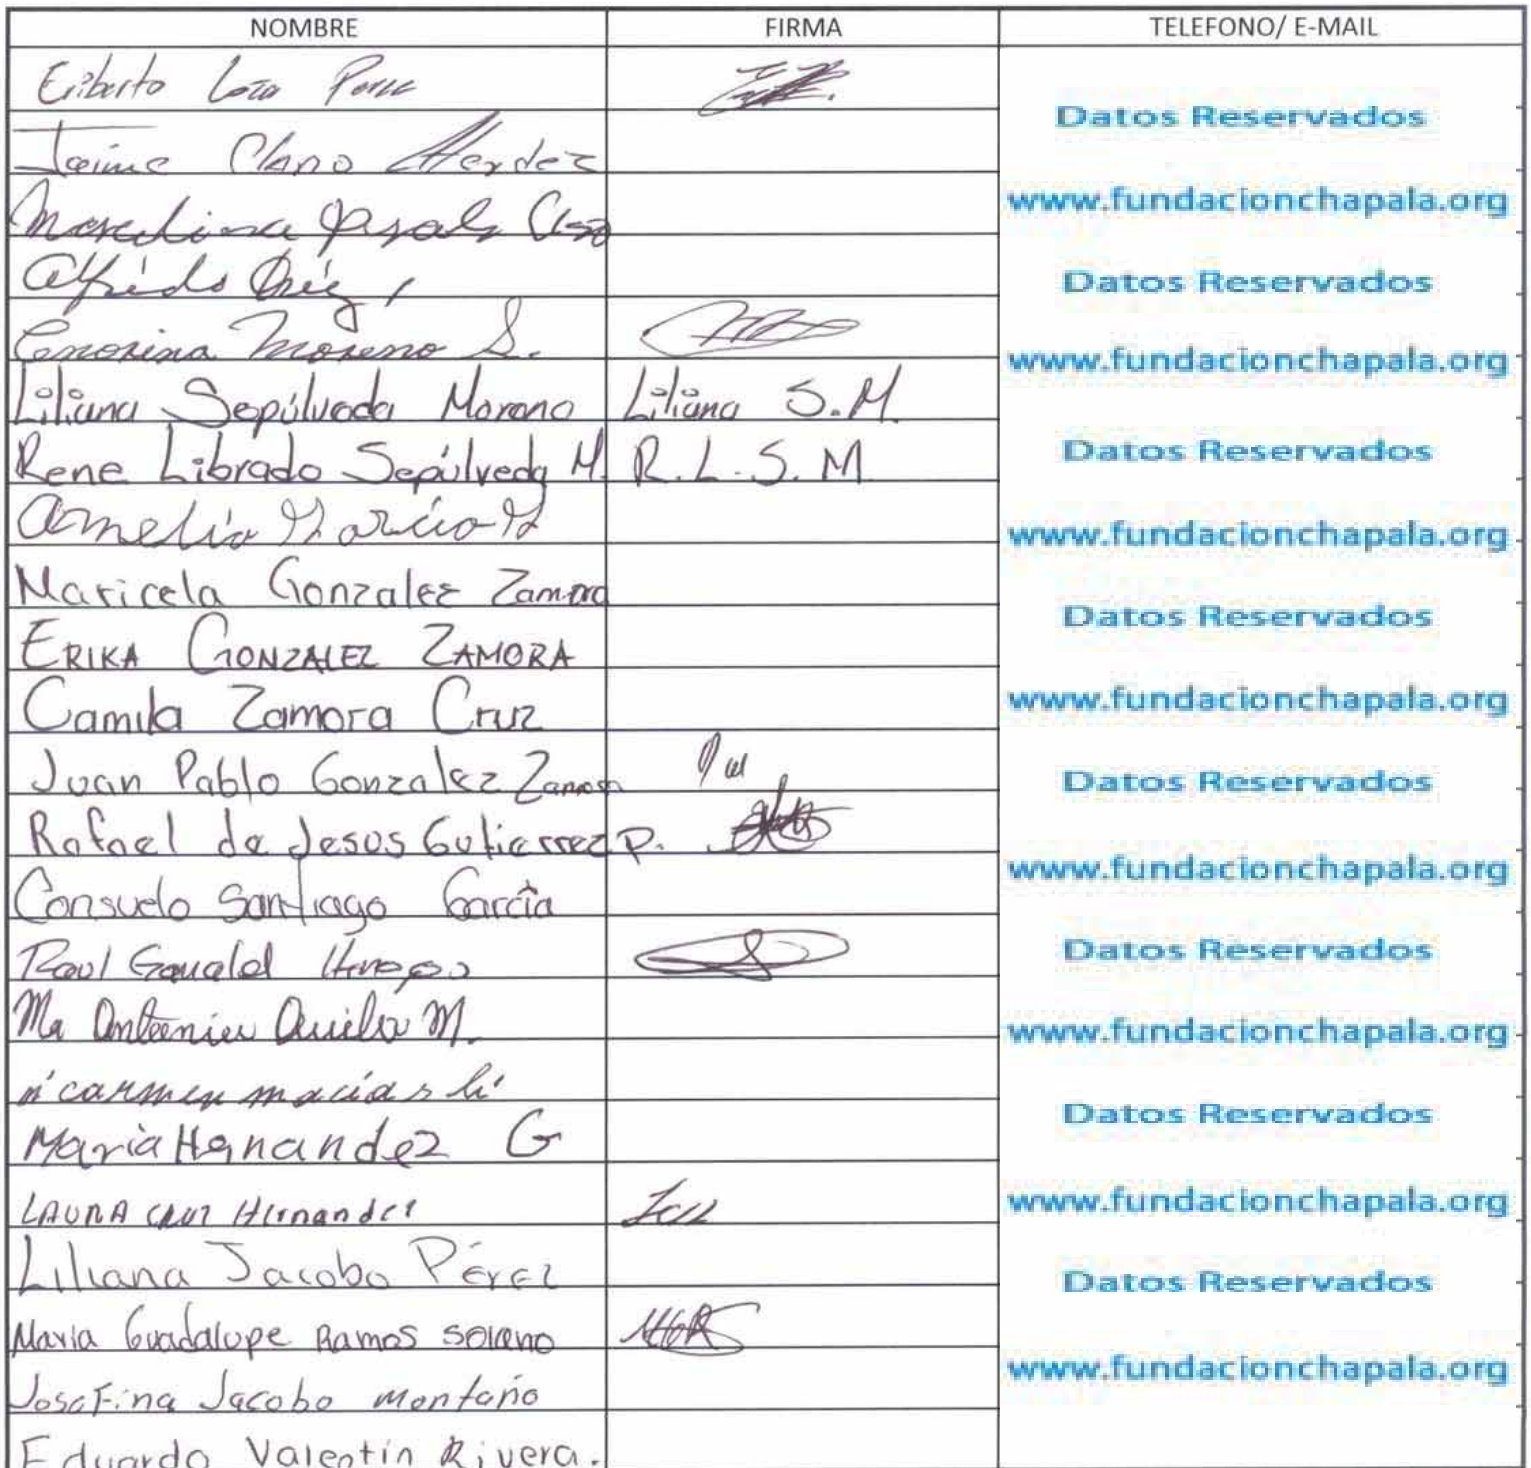 NOMBRE FIRMA TELEFONO/ E-MAIL
Eriberto Loza
Datos Reservados
Jaime Clano
www.fundacionchapala.org
Marcelina
Alfrédo
Datos Reservados
Cenorina Moreno S.
www.fundacionchapala.org
Liliana Sepúlveda Moreno Liliana S.M.
Rene Librado Sepúlveda M. R.L.S.M
Datos Reservados
Amelia
www.fundacionchapala.org
Maricela Gonzalez Zamora
Datos Reservados
ERIKA GONZALEZ ZAMORA
Camila Zamora Cruz
www.fundacionchapala.org
Juan Pablo Gonzalez Zamora
Datos Reservados
Rafael de Jesus Gutierrez P.
www.fundacionchapala.org
Consuelo Santiago García
Raul
Datos Reservados
Ma M.
www.fundacionchapala.org
carmen macías
Datos Reservados
Maria Hernandez G
LAURA CRUZ Hernandez
www.fundacionchapala.org
Liliana Jacobo Pérez
Datos Reservados
Maria Guadalupe Ramos Solano
www.fundacionchapala.org
Josefina Jacobo Montaño
Eduardo Valentín Rivera.